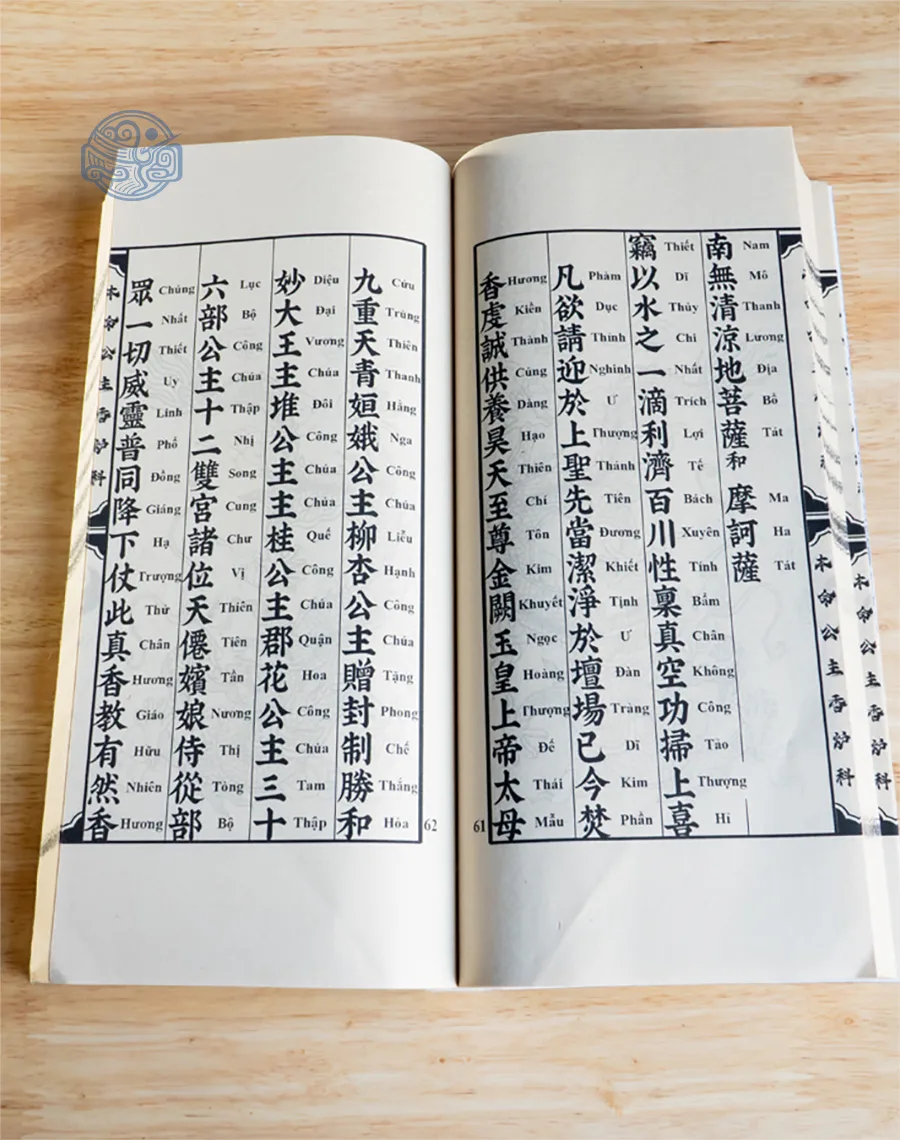 南無清涼地菩薩和摩訶薩
Nam Mô Thanh Lương Địa Bồ Tát Ma Ha Tát
竊以水之一滴利濟百川性稟真空功掃上喜
Thiết Dĩ Thủy Chi Nhất Trích Lợi Tế Bách Xuyên Tính Bẩm Chân Không Công Tảo Thượng Hỉ
凡欲請迎於上聖先當潔淨於壇場已今焚
Phàm Dục Thỉnh Nghinh Ư Thượng Thánh Tiên Đương Khiết Tịnh Ư Đàn Tràng Dĩ Kim Phần
香虔誠供養昊天至尊金闕玉皇上帝太母
Hương Kiền Thành Cúng Dàng Hạo Thiên Chí Tôn Kim Khuyết Ngọc Hoàng Thượng Đế Thái Mẫu
61
本命公主香炉科
九重天青姮娥公主柳杏公主贈封制勝和
Cửu Trùng Thiên Thanh Hằng Nga Công Chúa Liễu Hạnh Công Chúa Tặng Phong Chế Thắng Hòa
妙大王主堆公主主桂公主郡花公主三十
Diệu Đại Vương Chúa Đôi Công Chúa Chúa Quế Công Chúa Quận Hoa Công Chúa Tam Thập
六部公主十二雙宮諸位天僊嬪娘侍從部
Lục Bộ Công Chúa Thập Nhị Song Cung Chư Vị Thiên Tiên Tần Nương Thị Tòng Bộ
眾一切威靈普同降下仗此真香教有然香
Chúng Nhất Thiết Uy Linh Phổ Đồng Giáng Hạ Trượng Thử Chân Hương Giáo Hữu Nhiên Hương
62
本命公主香炉科